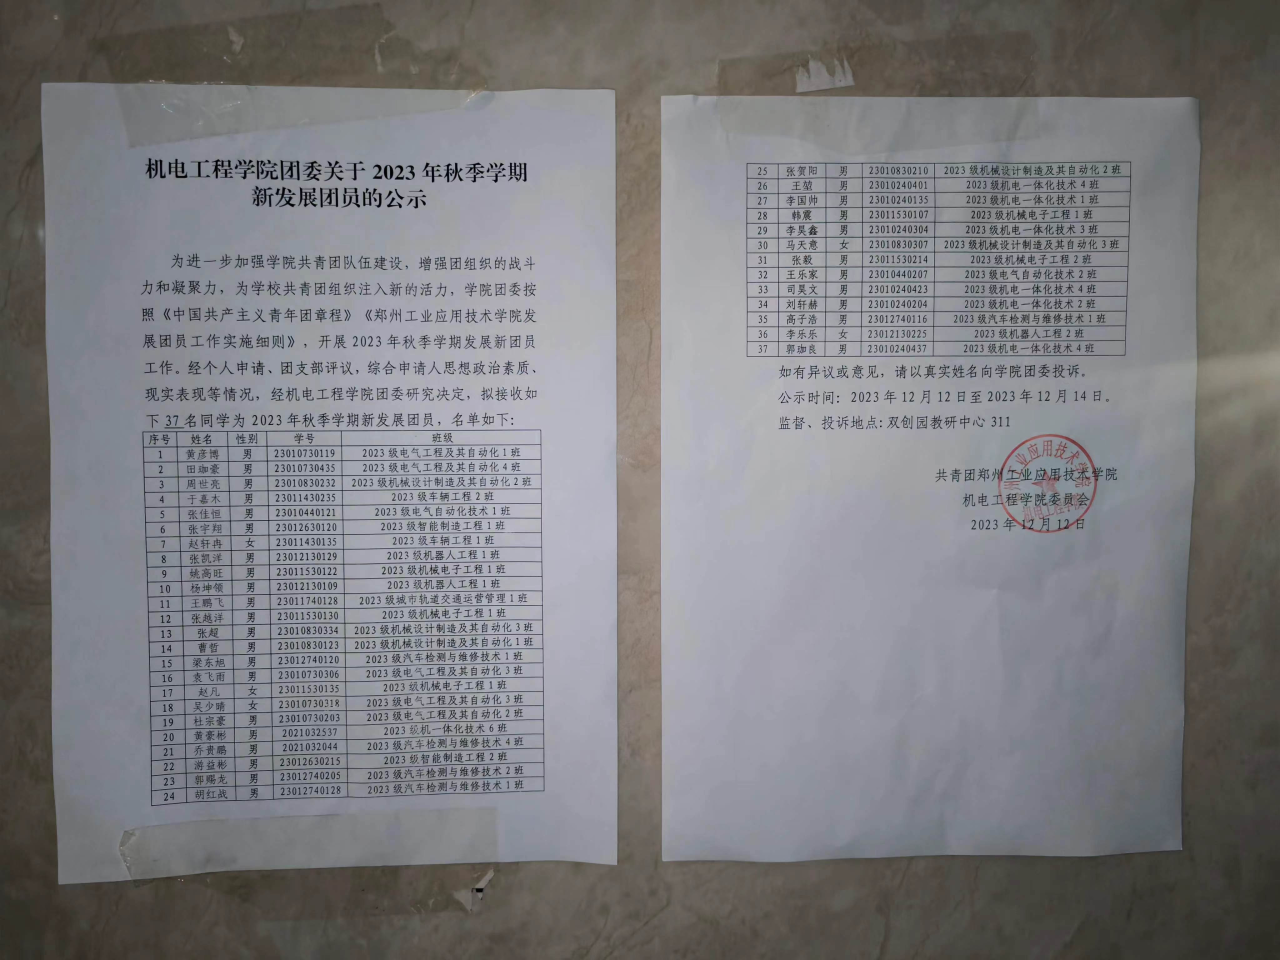 机电工程学院团委关于 2023 年秋季学期
新发展团员的公示
为进一步加强学院共青团队伍建设，增强团组织的战斗
力和凝聚力，为学校共青团组织注入新的活力，学院团委按
照《中国共产主义青年团章程》《郑州工业应用技术学院发
展团员工作实施细则》，开展 2023 年秋季学期发展新团员
工作。经个人申请、团支部评议，综合申请人思想政治素质、
现实表现等情况，经机电工程学院团委研究决定，拟接收如
下 37 名同学为 2023 年秋季学期新发展团员，名单如下：
序号 姓名 性别 学号 班级
1 黄彦博 男 23010730119 2023 级电气工程及其自动化 1 班
2 田珈豪 男 23010730435 2023 级电气工程及其自动化 4 班
3 周世亮 男 23010830232 2023 级机械设计制造及其自动化 2 班
4 于嘉木 男 23011430235 2023 级车辆工程 2 班
5 张佳恒 男 23010440121 2023 级电气自动化技术 1 班
6 张宇翔 男 23012630120 2023 级智能制造工程 1 班
7 赵轩冉 女 23011430135 2023 级车辆工程 1 班
8 张凯洋 男 23012130129 2023 级机器人工程 1 班
9 姚高旺 男 23011530122 2023 级机械电子工程 1 班
10 杨坤领 男 23012130109 2023 级机器人工程 1 班
11 王鹏飞 男 23011740128 2023 级城市轨道交通运营管理 1 班
12 张越洋 男 23011530130 2023 级机械电子工程 1 班
13 张超 男 23010830334 2023 级机械设计制造及其自动化 3 班
14 曹哲 男 23010830123 2023 级机械设计制造及其自动化 1 班
15 梁东旭 男 23012740120 2023 级汽车检测与维修技术 1 班
16 袁飞雨 男 23010730306 2023 级电气工程及其自动化 3 班
17 赵凡 女 23011530135 2023 级机械电子工程 1 班
18 吴少晴 女 23010730318 2023 级电气工程及其自动化 3 班
19 杜宗豪 男 23010730203 2023 级电气工程及其自动化 2 班
20 黄豪彬 男 2021032537 2023 级机一体化技术 6 班
21 乔贵鹏 男 2021032044 2023 级汽车检测与维修技术 4 班
22 游益彬 男 23012630215 2023 级智能制造工程 2 班
23 郭赐龙 男 23012740205 2023 级汽车检测与维修技术 2 班
24 胡红战 男 23012740128 2023 级汽车检测与维修技术 1 班
25 张贺阳 男 23010830210 2023 级机械设计制造及其自动化 2 班
26 王堃 男 23010240401 2023 级机电一体化技术 4 班
27 李国帅 男 23010240135 2023 级机电一体化技术 1 班
28 韩震 男 23011530107 2023 级机械电子工程 1 班
29 李昊鑫 男 23010240304 2023 级机电一体化技术 3 班
30 马天意 女 23010830307 2023 级机械设计制造及其自动化 3 班
31 张毅 男 23011530214 2023 级机械电子工程 2 班
32 王乐家 男 23010440207 2023 级电气自动化技术 2 班
33 司昊文 男 23010240423 2023 级机电一体化技术 4 班
34 刘轩赫 男 23010240204 2023 级机电一体化技术 2 班
35 高子浩 男 23012740116 2023 级汽车检测与维修技术 1 班
36 李乐乐 女 23012130225 2023 级机器人工程 2 班
37 郭珈良 男 23010240437 2023 级机电一体化技术 4 班
如有异议或意见，请以真实姓名向学院团委投诉。
公示时间：2023 年 12 月 12 日至 2023 年 12 月 14 日。
监督、投诉地点:双创园教研中心 311
共青团郑州工业应用技术学院
机电工程学院委员会
2023 年 12 月 12 日